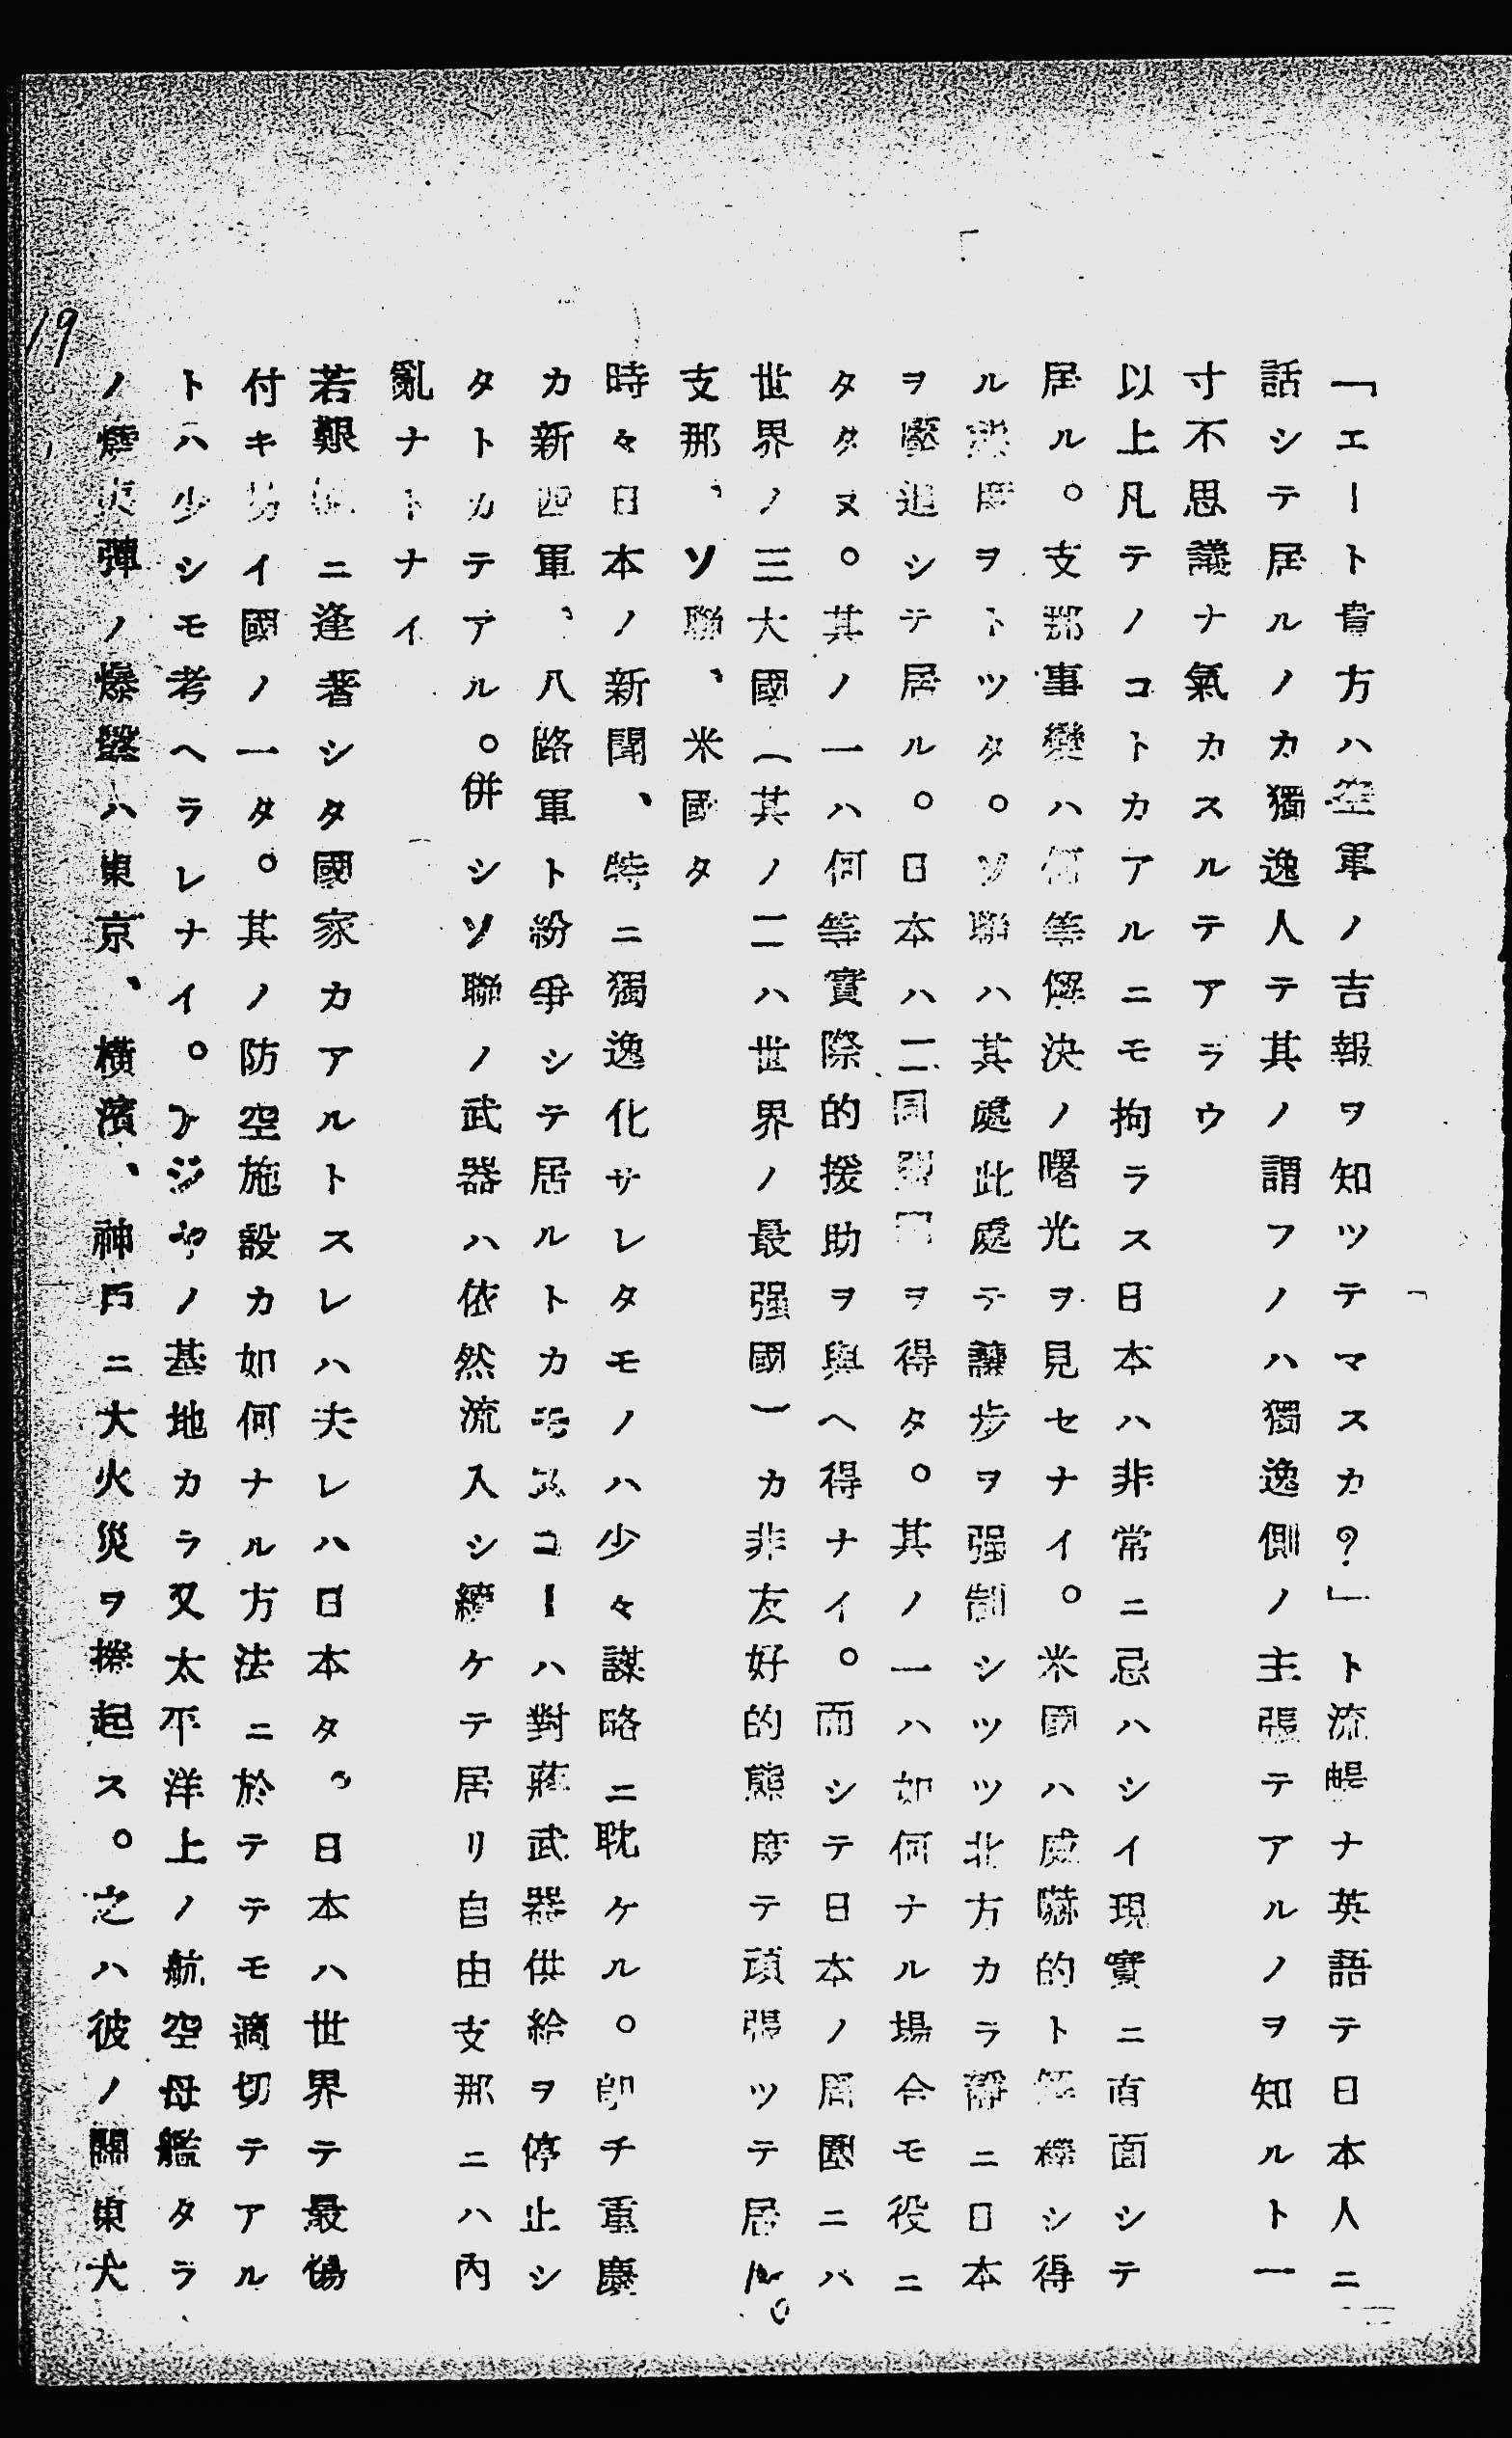 「エート貴方ハ空軍ノ吉報ヲ知ツテマスカ?」ト流暢ナ英語テ日本人ニ
話シテ居ルノカ獨逸人テ其ノ謂フノハ獨逸側ノ主張テアルノヲ知ルト一
寸不思議ナ氣カスルテアラウ
以上凡テノコトカアルニモ拘ラス日本ハ非常ニ忌ハシイ現實ニ直面シテ
居ル。支那事變ハ何等解決ノ曙光ヲ見セナイ。米國ハ威嚇的ト解釋シ得
ル態度ヲトツタ。ソ聯ハ其處此處テ讓歩ヲ强制シツツ北方カラ靜ニ日本
ヲ壓迫シテ居ル。日本ハ二同盟國ヲ得タ。其ノ一ハ如何ナル場合モ役ニ
タタヌ。其ノ一ハ何等實際的援助ヲ與ヘ得ナイ。而シテ日本ノ周圍ニハ
世界ノ三大國(其ノ二ハ世界ノ最强國)カ非友好的態度テ頑張ツテ居ル。
支那、ソ聯、米國タ
時々日本ノ新聞、特ニ獨逸化サレタモノハ少々謀略ニ耽ケル。卽チ重慶
カ新四軍、八路軍ト紛爭シテ居ルトカモスコーハ對蔣武器供給ヲ停止シ
タトカテアル。併シソ聯ノ武器ハ依然流入シ續ケテ居リ自由支那ニハ內
亂ナトナイ
若艱ニ逢著シタ國家カアルトスレハ夫レハ日本タ。日本ハ世界テ最傷
付キ易イ國ノ一タ。其ノ防空施設カ如何ナル方法ニ於テテモ適切テアル
トハ少シモ考ヘラレナイ。ジヤノ基地カラ又太平洋上ノ航空母艦タラ
ノ燒夷彈ノ爆擊ハ東京、橫濱、神戶ニ大火災ヲ捲起ス。之ハ彼ノ關東大
19